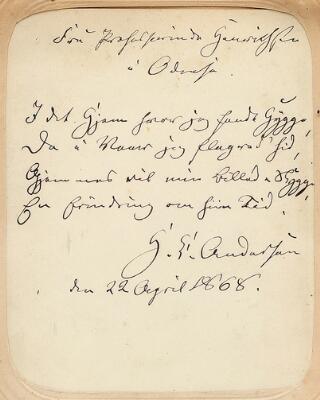 Fru Professorinde Henrichsen
i Odense.
I det Hjem hvor jeg fandt Hygge,
Da i Vaar jeg flagred' hid,
Gjemmes vil min Billed-Skygge
En Erindring om hiin Tid.
H. C. Andersen
den 22 April 1868.